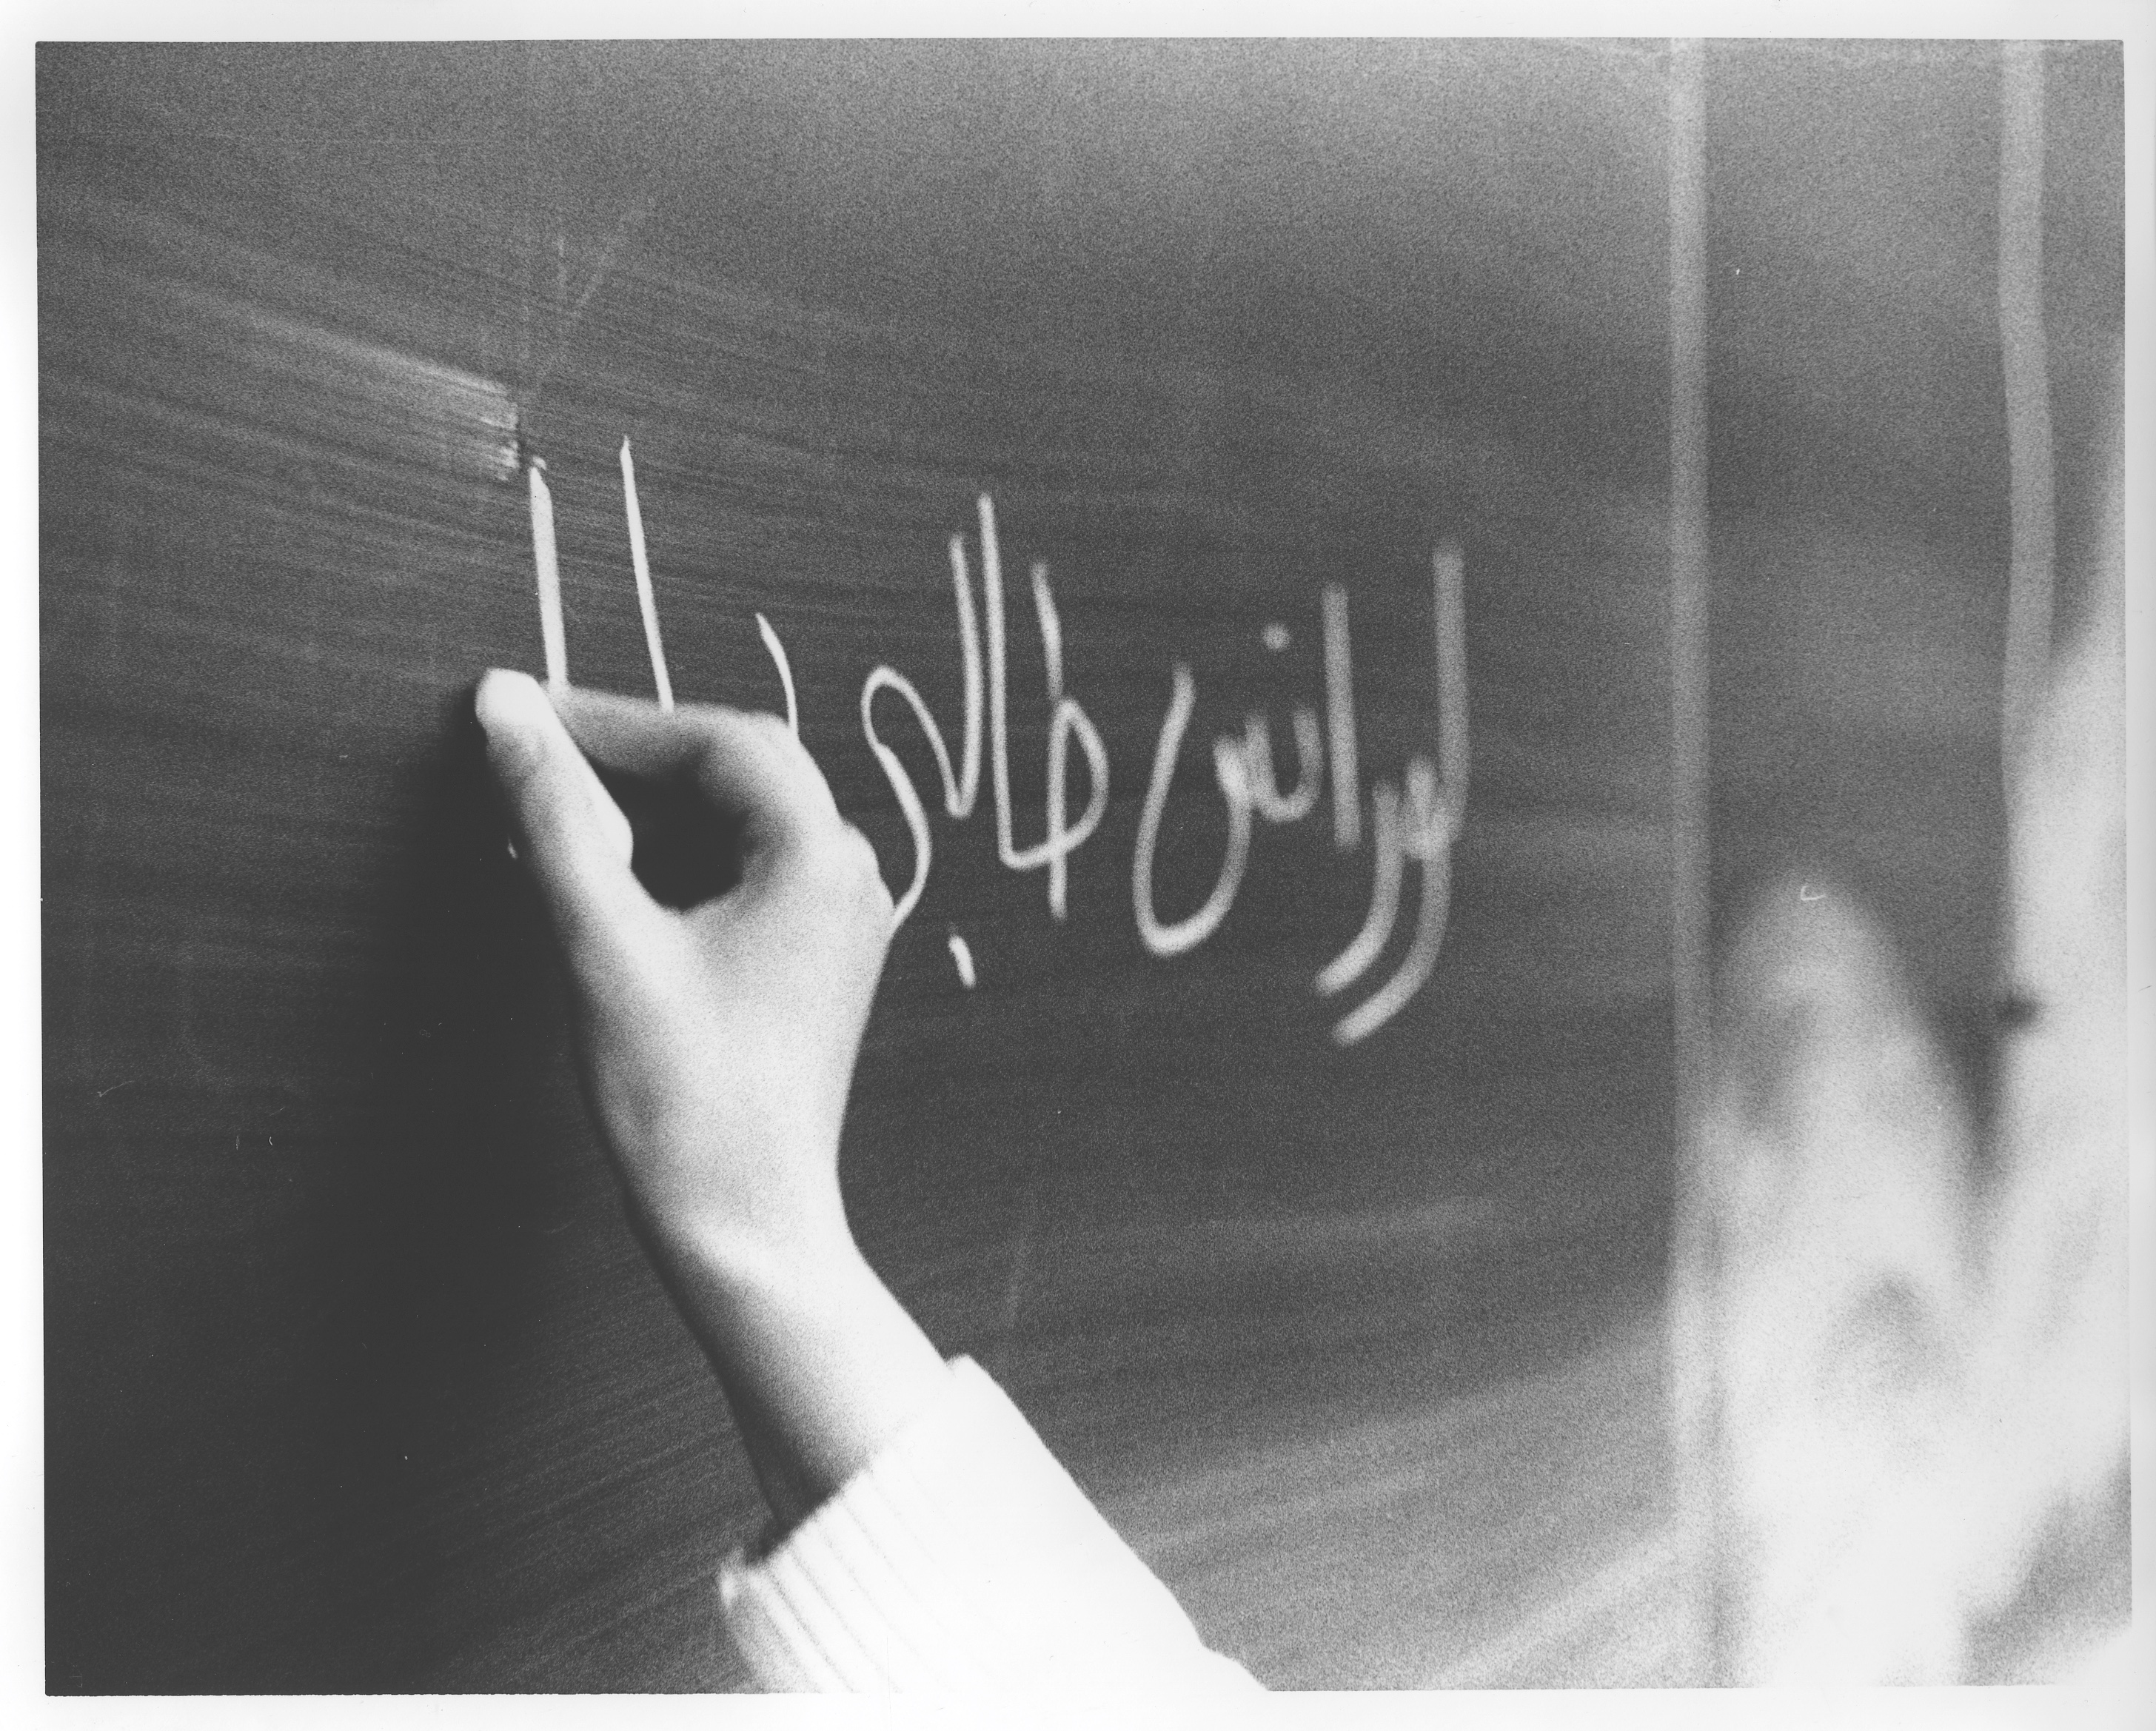 لورانس طالبي